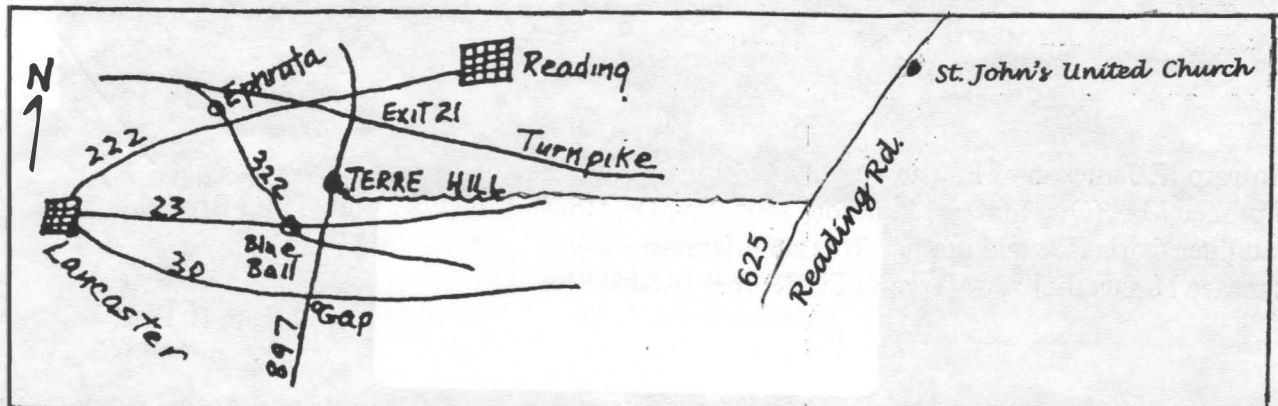 N
Ephrata
Reading
St. John's United Church
Exit 21
222
Turnpike
322
TERRE HILL
Reading Rd.
23
Blue
Ball
625
30
Lancaster
Gap
897